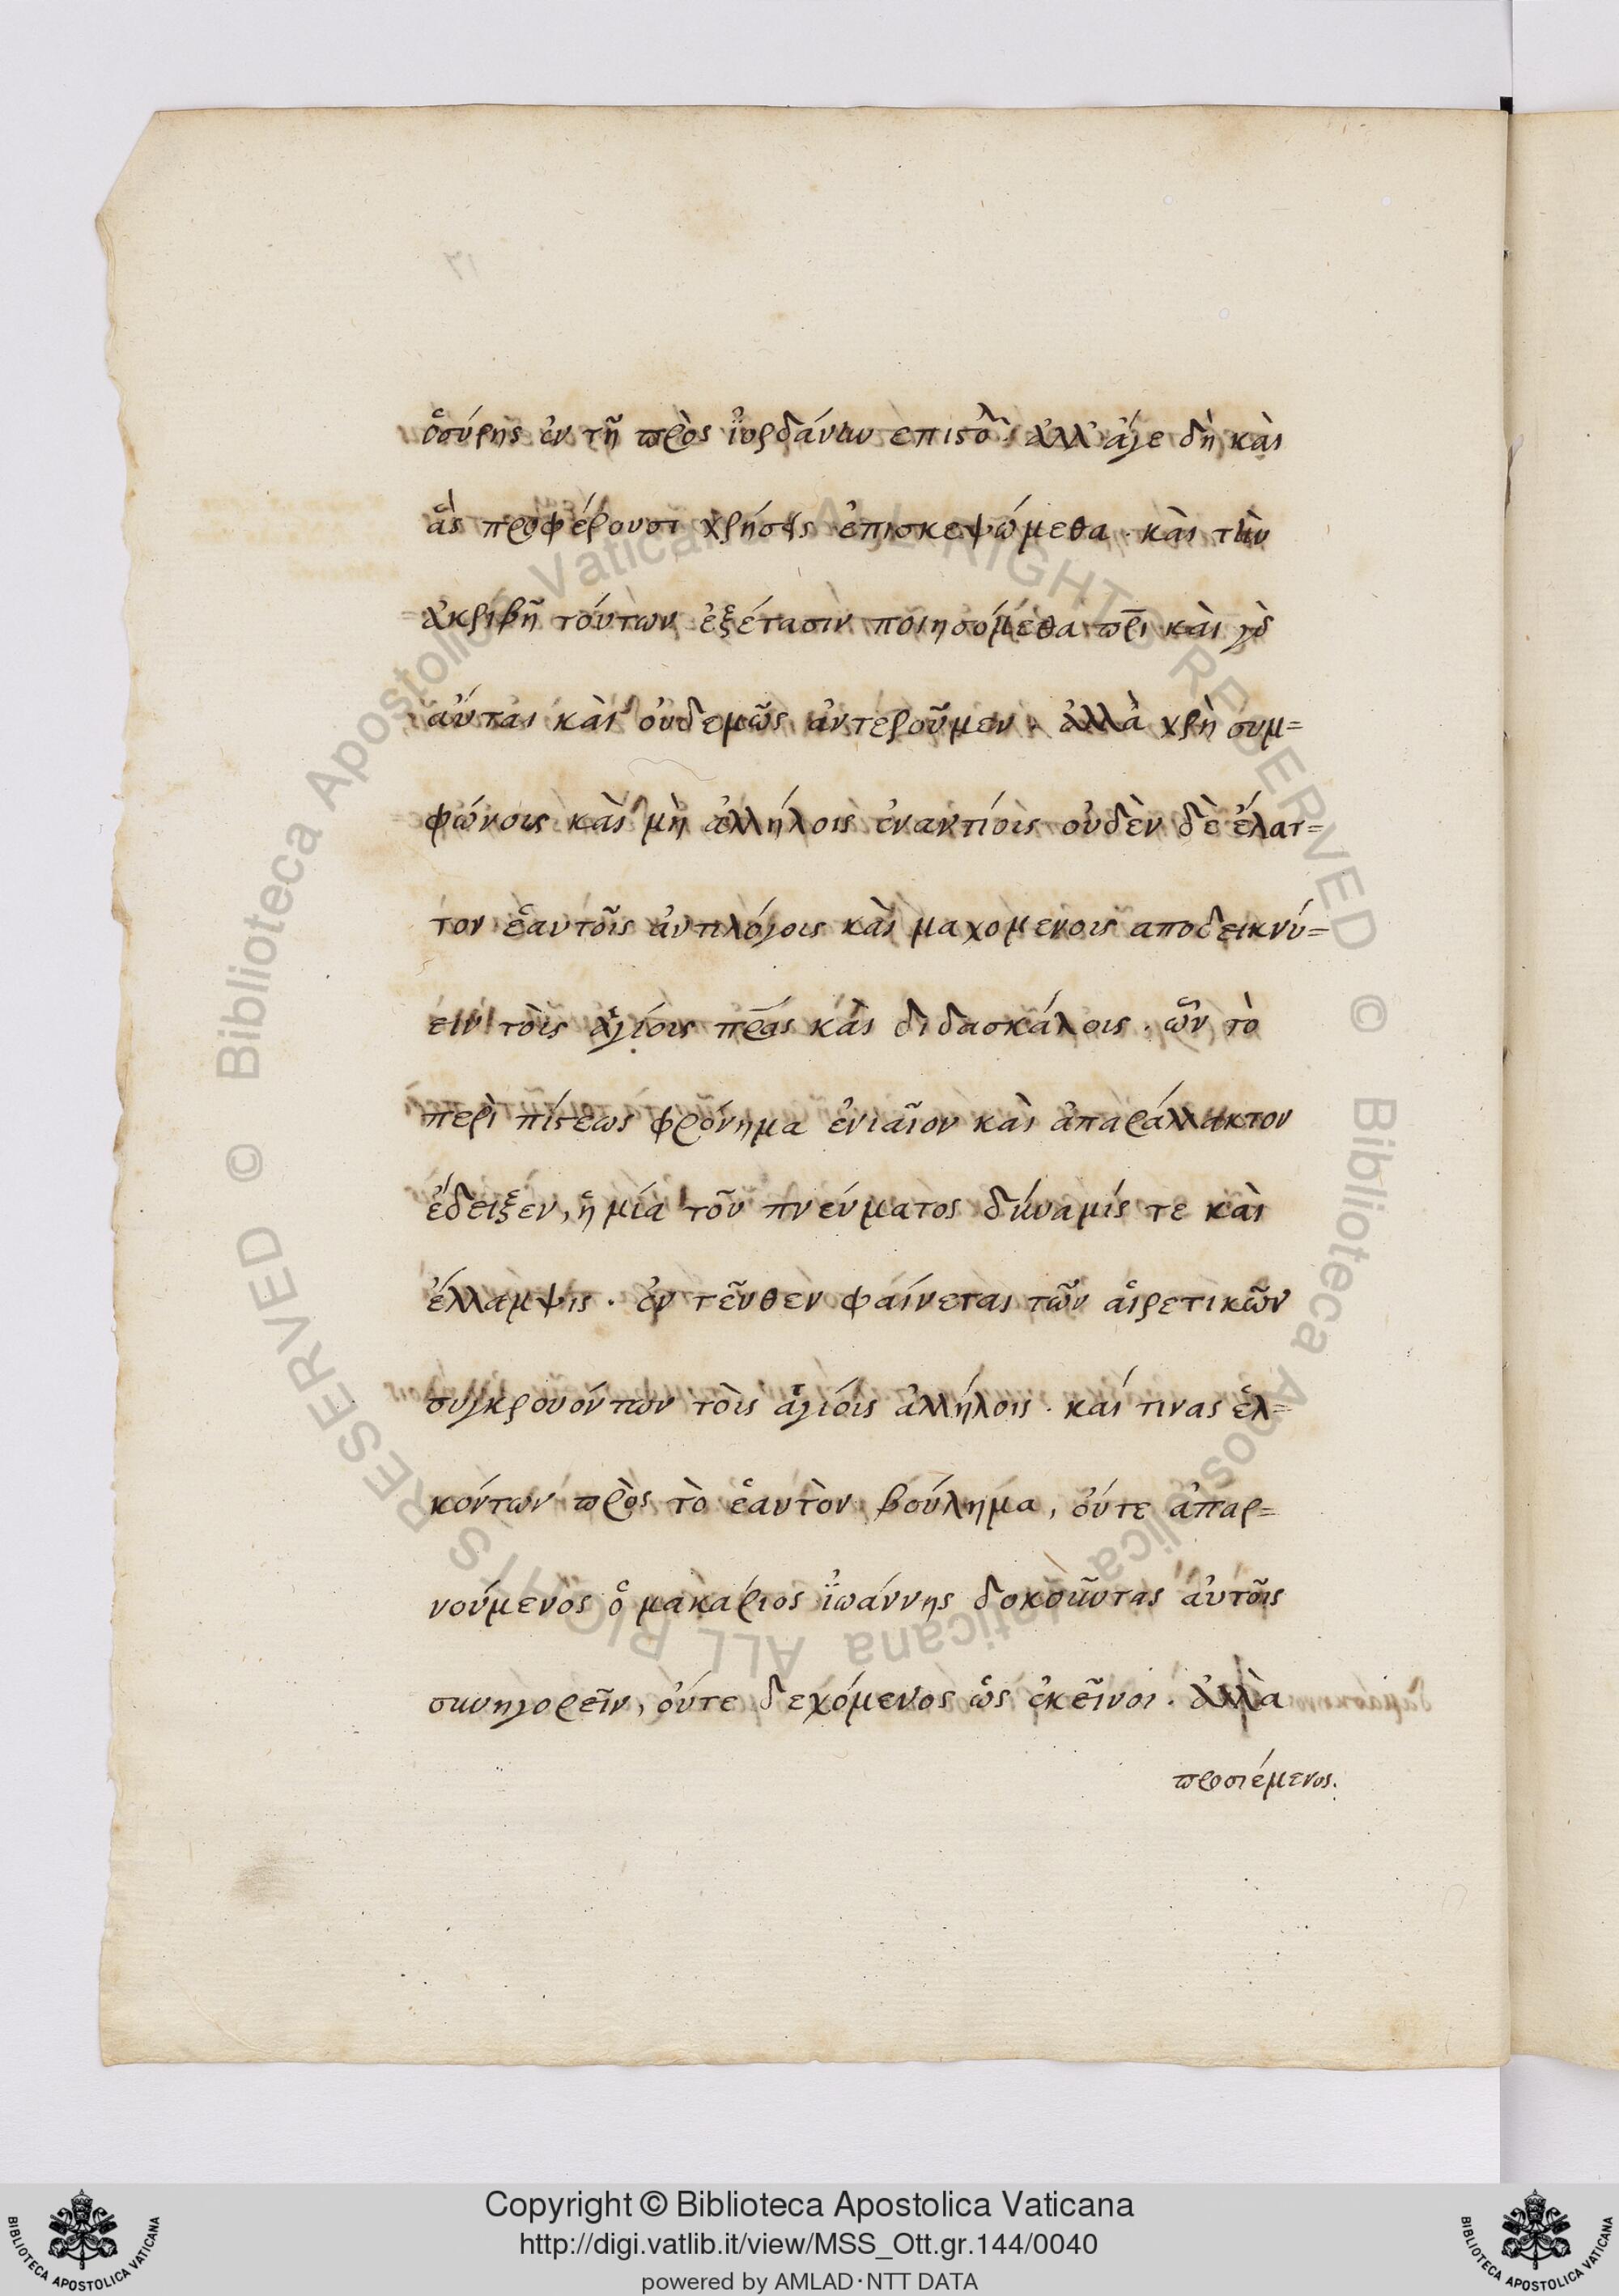 ὁσύρης ἐν τῆ πρὸς ἰορδάνην επιστολ ἀλλ' άγε δὴ καὶ
ἃς προφέρουσι χρήσεις ἐπισκεψώμεθα. καὶ τὴν
ἀκριβῆ τούτων ἐξέτασιν ποιησόμεθα πρι καὶ γὸ
αὐταὶ καὶ οὐδεμῶς ἀντεροῦμεν. ἀλλὰ χρὴ συμ=
φώνοις καὶ μὴ ἀλλήλοις ἐναντίοις οὐδὲν δὲ ἔλατ=
τον ἑαυτοῖς ἀντιλόγοις καὶ μαχομενοις αποδεικνύ=
ειν τοὶς ἁγίοις πρας καὶ διδασκάλοις. ὧν τὸ
περὶ πίστεως φρόνημα ἑνιαῖον καὶ ἀπαράλλακτον
ἔδειξεν, ἡ μία τοῦ πνεύματος δύναμίς τε καὶ
ἔλλαμψις. ἐν τεῦθεν φαίνεται τῶν αἱρετικῶν
συγκρουόντων τοὶς ἁγίοις ἀλλήλοις. καί τινας ἑλ=
κόντων πρὸς τὸ ἑαυτὸν βούλημα, οὔτε ἀπαρ=
νούμενος ὁ μακάριος ἰωάννης δοκοῦντας αὐτοῖς
συνηγορεῖν, οὔτε δεχόμενος ὡς ἐκεῖνοι. ἀλλὰ
προσιέμενος.
Copyright © Biblioteca Apostolica Vaticana
http://digi.vatlib.it/view/MSS_Ott.gr.144/0040
powered by AMLAD·NTT DATA
BIBLIOTECA APOSTOLICA VATICANA
BIBLIOTECA APOSTOLICA VATICANA
© Biblioteca Apostolica Vaticana ALL RIGHTS RESERVED
© Biblioteca Apostolica Vaticana ALL RIGHTS RESERVED